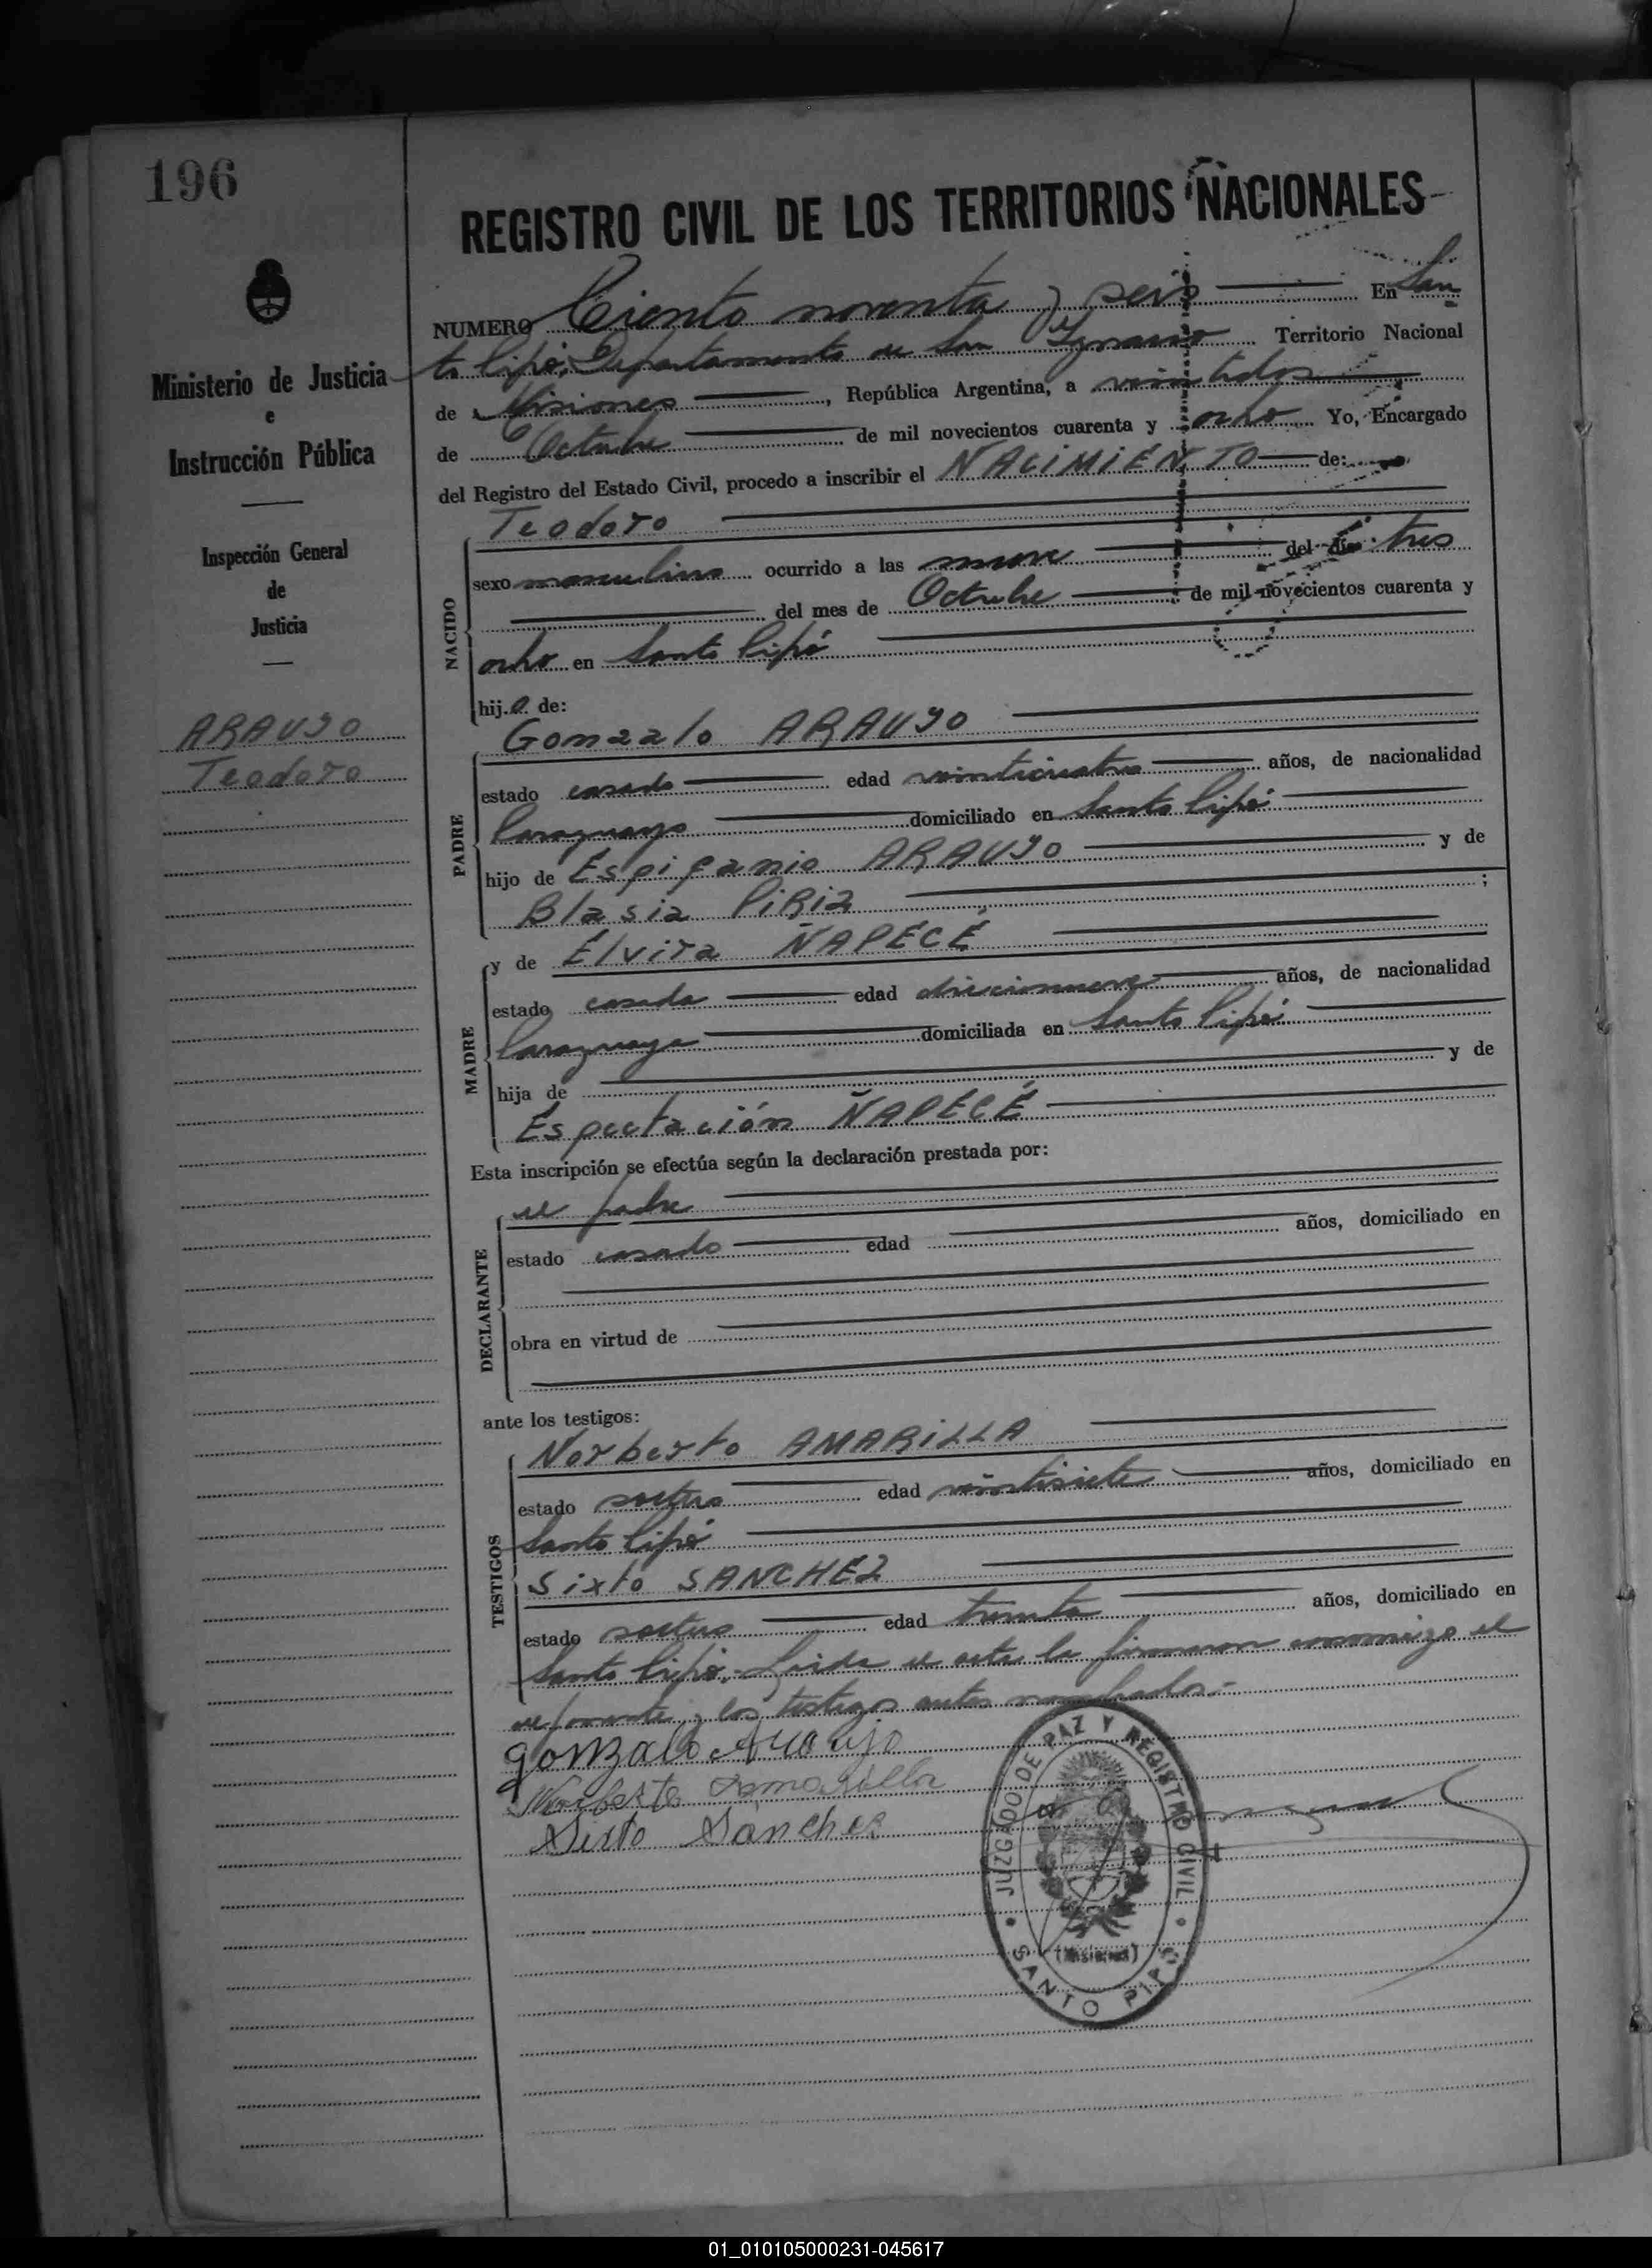 196
REGISTRO CIVIL DE LOS TERRITORIOS NACIONALES
Ministerio de Justicia
e
Instrucción Pública
Inspección General
de
Justicia
ARAUJO
Teodoro
NUMERO Ciento noventa y seis En San
to Pipó, Departamento de San Ignacio Territorio Nacional
de Misiones, República Argentina, a veintidos
de Octubre de mil novecientos cuarenta y ocho Yo, Encargado
del Registro del Estado Civil, procedo a inscribir el NACIMIENTO de:
NACIDO
Teodoro
sexo masculino ocurrido a las nueve del día tres
del mes de Octubre de mil novecientos cuarenta y
ocho en Santo Pipó
hijo de:
PADRE
Gonzalo ARAUJO
estado casado edad veinticuatro años, de nacionalidad
Paraguayo domiciliado en Santo Pipó
hijo de Espifanio ARAUJO y de
Blasia PIRIZ ;
MADRE
y de Elvira ÑAPECÉ
estado casada edad diecinueve años, de nacionalidad
Paraguaya domiciliada en Santo Pipó
hija de y de
Espectación ÑAPECÉ
Esta inscripción se efectúa según la declaración prestada por:
DECLARANTE
el padre
estado casado edad años, domiciliado en
obra en virtud de
ante los testigos:
TESTIGOS
Norberto AMARILLA
estado soltero edad veintisiete años, domiciliado en
Santo Pipó
Sixto SANCHEZ
estado soltero edad treinta años, domiciliado en
Santo Pipó.- Leída el acta la firmaron conmigo el
exponente y los testigos antes nombrados.-
Gonzalo Araujo
Norberto Amarilla
Sixto Sanchez
JUZGADO DE PAZ Y REGISTRO CIVIL
(Misiones)
SANTO PIPÓ
01_010105000231-045617